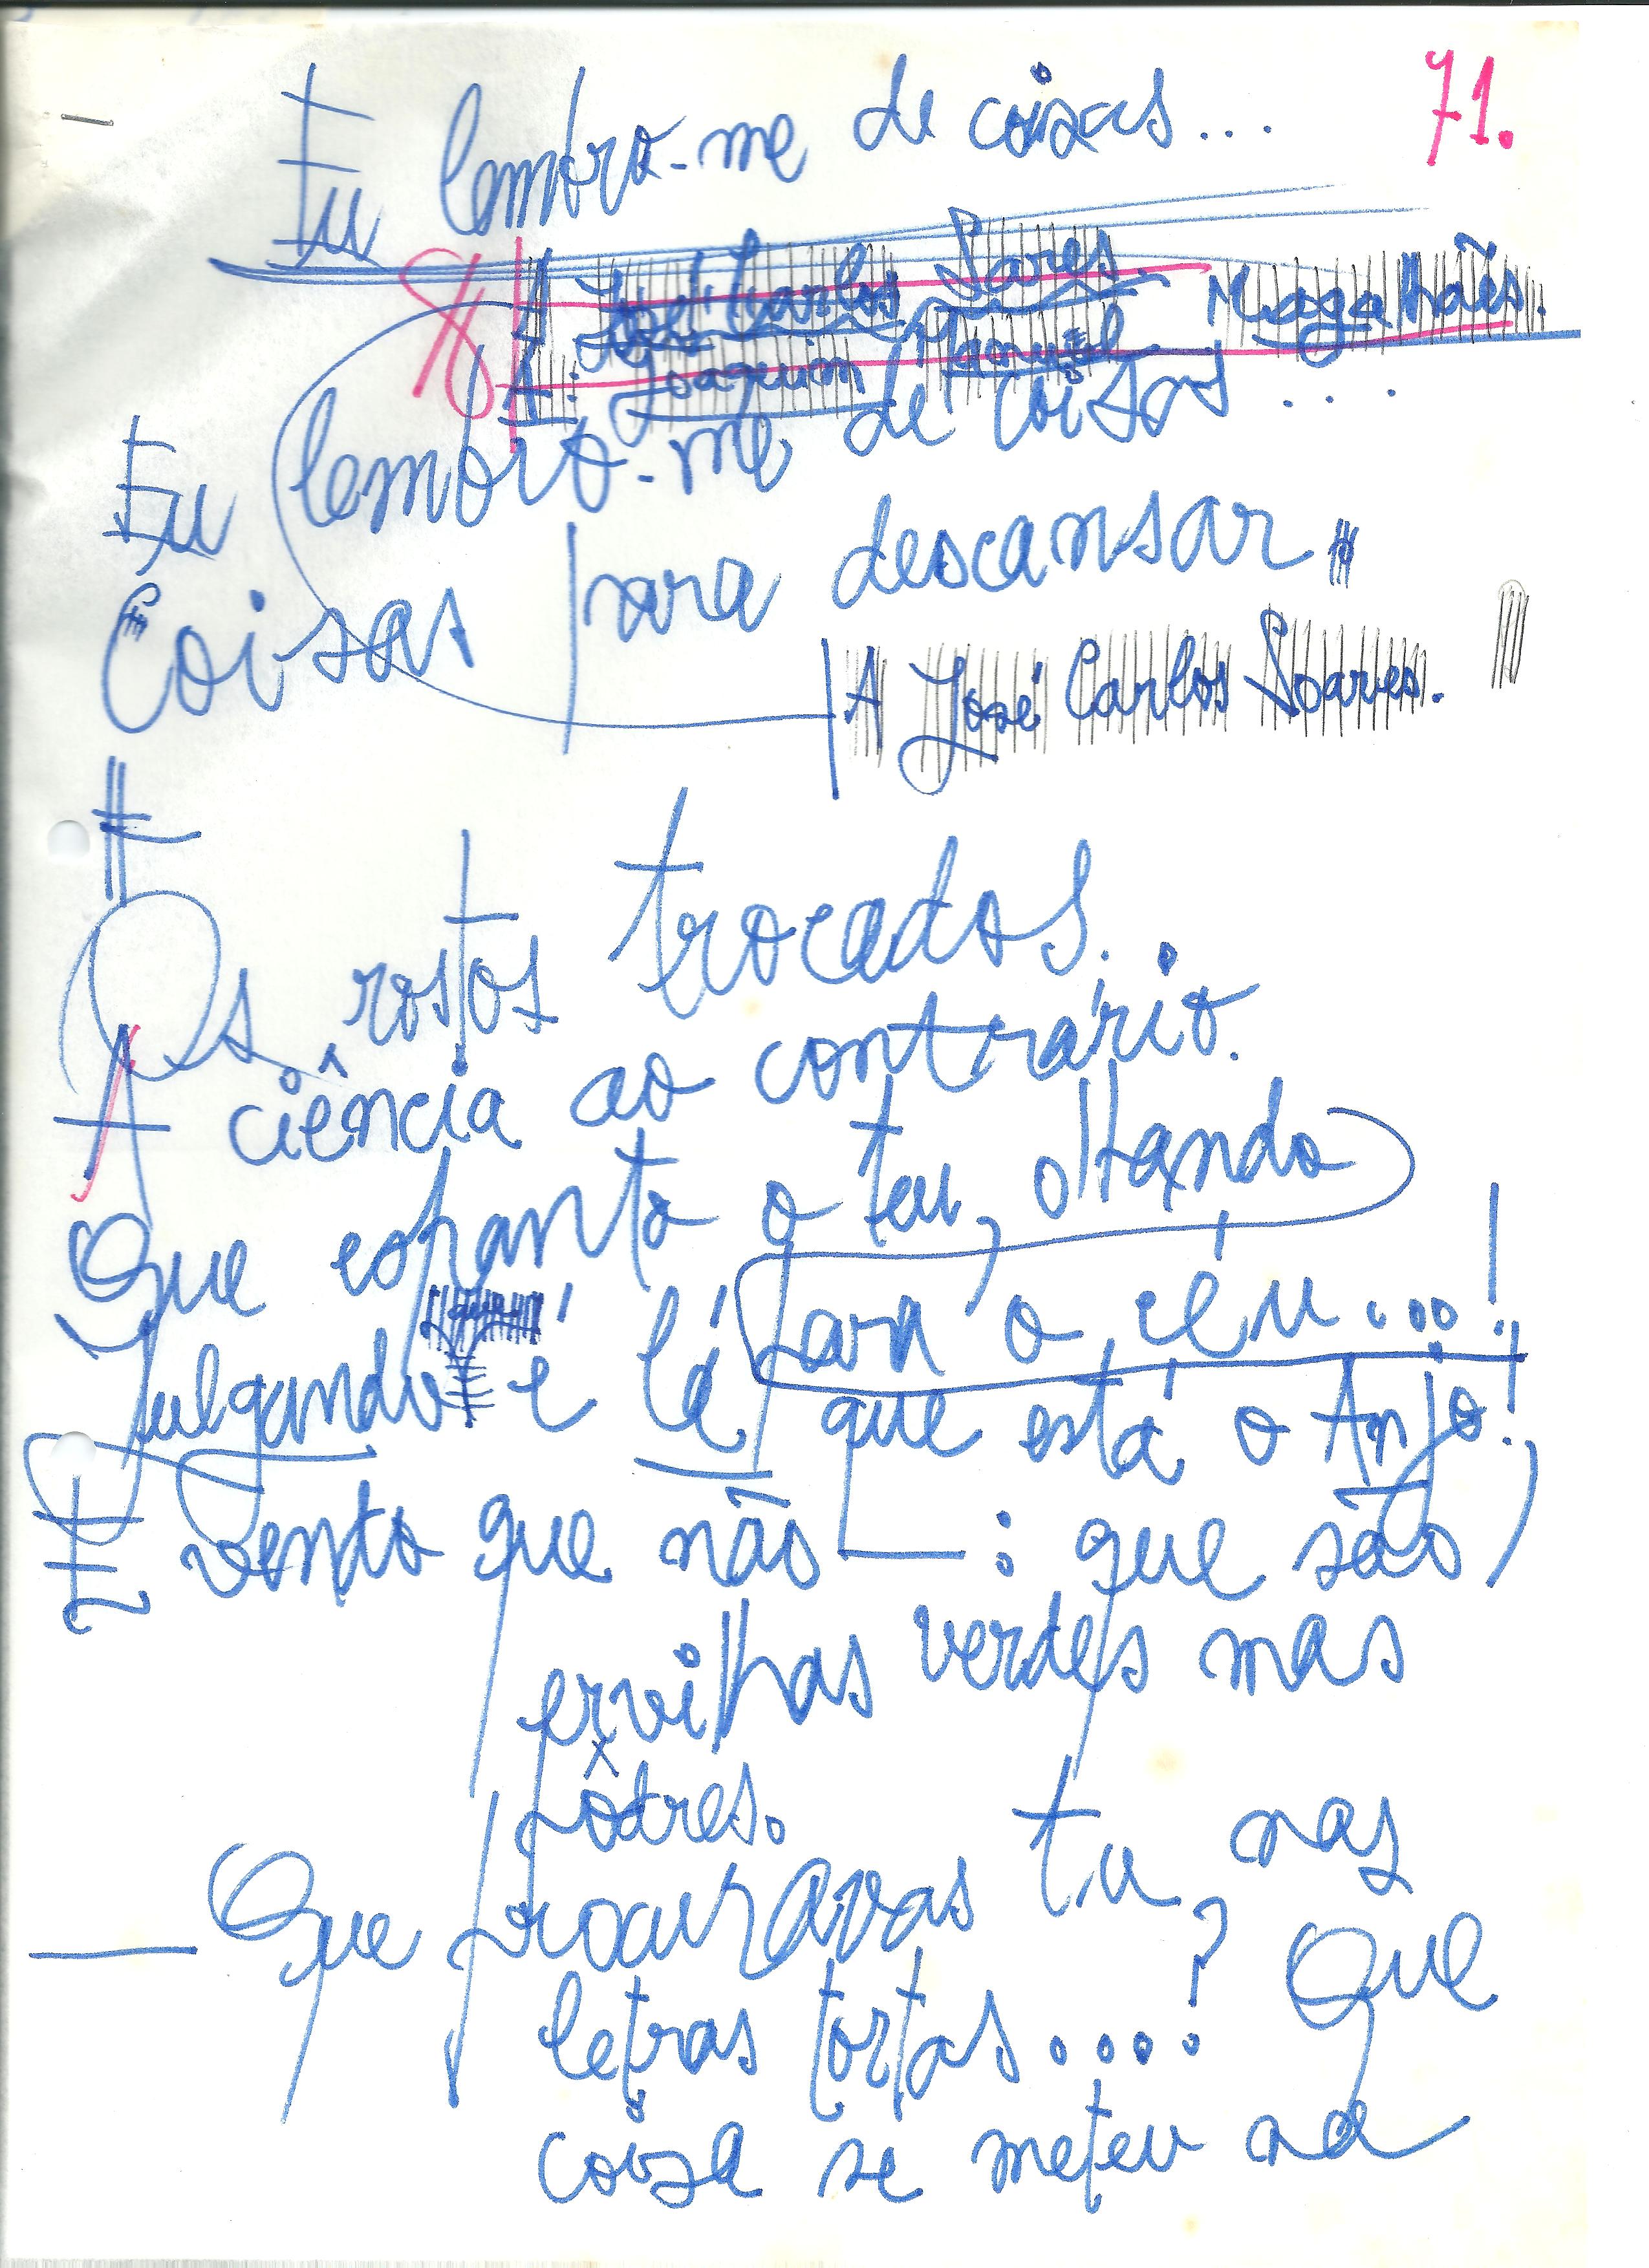 71.
Eu lembro-me de coisas...
A José Carlos Soares.
A: Joaquim Manuel Magalhães.
Eu lembro-me de coisas ....
Coisas para descansar
A José Carlos Soares.
Os rostos trocados.
A ciência ao contrário.
Que espanto o teu, olhando
para o céu...!
Julgando é lá que está o Anjo!
E vento que não — : que são
ervilhas verdes mas
pôdres.
— Que procuravas tu nas
letras tortas....? Que
coisa se meteu na